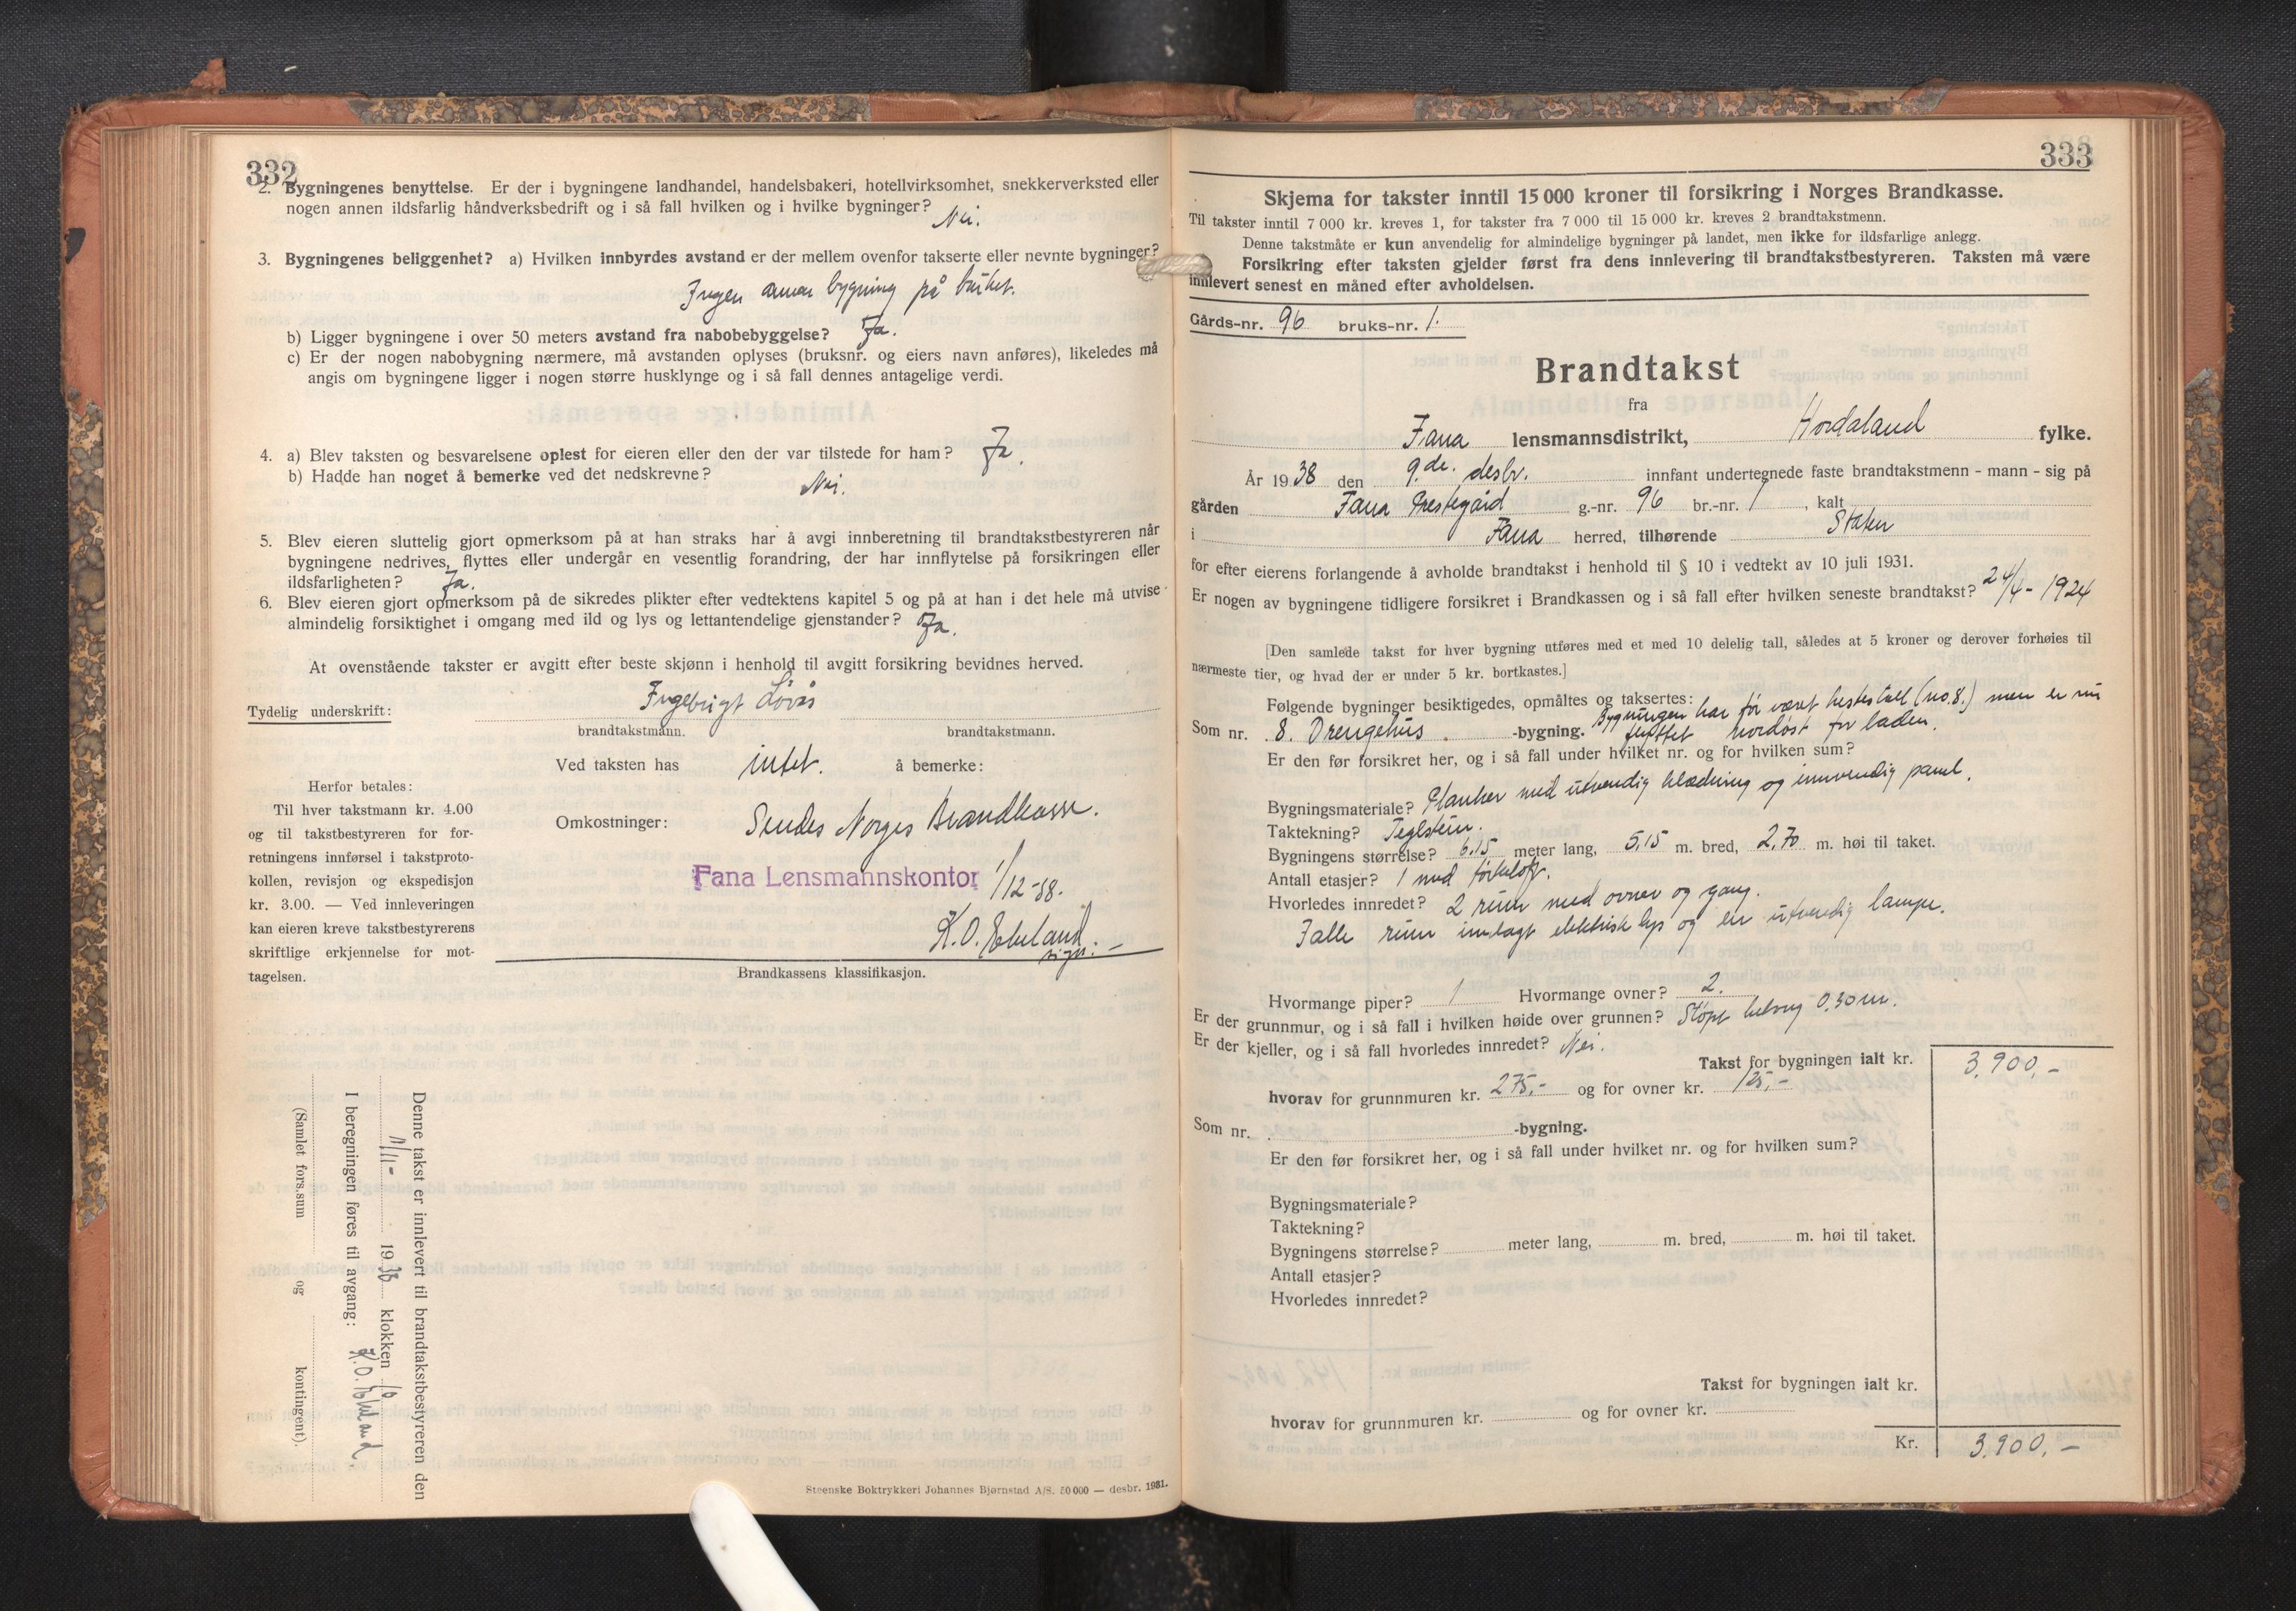 332
2. Bygningenes benyttelse. Er der i bygningene landhandel, handelsbakeri, hotellvirksomhet, snekkerverksted eller
nogen annen ildsfarlig håndverksbedrift og i så fall hvilken og i hvilke bygninger? Nei.
3. Bygningenes beliggenhet? a) Hvilken innbyrdes avstand er der mellem ovenfor takserte eller nevnte bygninger?
Ingen annen bygning på bruket.
b) Ligger bygningene i over 50 meters avstand fra nabobebyggelse? Ja.
c) Er der nogen nabobygning nærmere, må avstanden oplyses (bruksnr. og eiers navn anføres), likeledes må
angis om bygningene ligger i nogen større husklynge og i så fall dennes antagelige verdi.
4. a) Blev taksten og besvarelsene oplest for eieren eller den der var tilstede for ham? Ja.
b) Hadde han noget å bemerke ved det nedskrevne? Nei.
5. Blev eieren sluttelig gjort opmerksom på at han straks har å avgi innberetning til brandtakstbestyreren når
bygningene nedrives, flyttes eller undergår en vesentlig forandring, der har innflytelse på forsikringen eller
ildsfarligheten? Ja.
6. Blev eieren gjort opmerksom på de sikredes plikter efter vedtektens kapitel 5 og på at han i det hele må utvise
almindelig forsiktighet i omgang med ild og lys og lettantendelige gjenstander? Ja.
At ovenstående takster er avgitt efter beste skjønn i henhold til avgitt forsikring bevidnes herved.
Tydelig underskrift: Ingebrigt Løvås
brandtakstmann. brandtakstmann.
Ved taksten has intet. å bemerke:
Herfor betales:
Til hver takstmann kr. 4.00
og til takstbestyreren for for-
retningens innførsel i takstproto-
kollen, revisjon og ekspedisjon
kr. 3.00. — Ved innleveringen
kan eieren kreve takstbestyrerens
skriftlige erkjennelse for mot-
tagelsen.
Omkostninger: Sendes Norges Brandkasse.
Fana Lensmannskontor 1/12-38.
K. O. Ekeland.
sign.
Brandkassens klassifikasjon.
Denne takst er innlevert til brandtakstbestyreren den
11/11- 1938 klokken 10
I beregningen føres til avgang: K. O. Ekeland.
(Samlet fors.sum og kontingent).
Steenske Boktrykkeri Johannes Bjørnstad A/S. 50 000 — desbr. 1931.
333
Skjema for takster inntil 15 000 kroner til forsikring i Norges Brandkasse.
Til takster inntil 7 000 kr. kreves 1, for takster fra 7 000 til 15 000 kr. kreves 2 brandtakstmenn.
Denne takstmåte er kun anvendelig for almindelige bygninger på landet, men ikke for ildsfarlige anlegg.
Forsikring efter taksten gjelder først fra dens innlevering til brandtakstbestyreren. Taksten må være
innlevert senest en måned efter avholdelsen.
Gårds-nr. 96 bruks-nr. 1.
Brandtakst
fra
Fana lensmannsdistrikt, Hordaland fylke.
År 1938 den 9.de. desbr. innfant undertegnede faste brandtakstmenn - mann - sig på
gården Fana Prestegård g.-nr. 96 br.-nr. 1, kalt
i Fana herred, tilhørende Staten
for efter eierens forlangende å avholde brandtakst i henhold til § 10 i vedtekt av 10 juli 1931.
Er nogen av bygningene tidligere forsikret i Brandkassen og i så fall efter hvilken seneste brandtakst? 24/4-1924
[Den samlede takst for hver bygning utføres med et med 10 delelig tall, således at 5 kroner og derover forhøies til
nærmeste tier, og hvad der er under 5 kr. bortkastes.]
Følgende bygninger besiktigedes, opmåltes og taksertes:
Som nr. 8. Drengehus. -bygning. Bygningen har før været hestestall (no. 8.) men er nu
flyttet nordøst for laden.
Er den før forsikret her, og i så fall under hvilket nr. og for hvilken sum?
Bygningsmateriale? Planker med utvendig klædning og innvendig panel.
Taktekning? Teglstein.
Bygningens størrelse? 6,15 meter lang, 5,15 m. bred, 2,70 m. høi til taket.
Antall etasjer? 1 med
Hvorledes innredet? 2 rum med ovner og gang.
I alle rum innlagt elektrisk lys og en utvendig lampe.
Hvormange piper? 1 Hvormange ovner? 2.
Er der grunnmur, og i så fall i hvilken høide over grunnen? Støpt betong 0,30 m.
Er der kjeller, og i så fall hvorledes innredet? Nei.
Takst for bygningen ialt kr. 3.900,-
hvorav for grunnmuren kr. 275,- og for ovner kr. 125,-
Som nr. -bygning.
Er den før forsikret her, og i så fall under hvilket nr. og for hvilken sum?
Bygningsmateriale?
Taktekning?
Bygningens størrelse? meter lang, m. bred, m. høi til taket.
Antall etasjer?
Hvorledes innredet?
Takst for bygningen ialt kr.
hvorav for grunnmuren kr. og for ovner kr.
Kr. 3.900,-